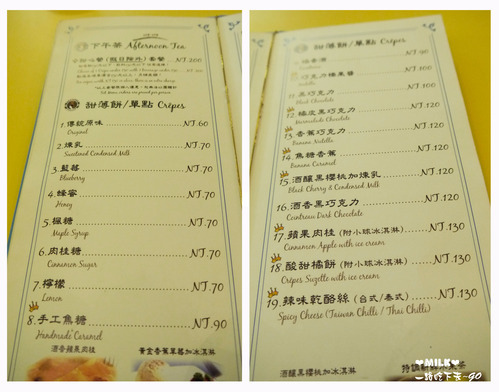 下午茶 Afternoon Tea
NT.200
甜薄餅/單點 Crêpes
1.傳統原味 NT.60
Original
2.煉乳 NT.70
Sweetened Condensed Milk
3.藍莓 NT.70
Blueberry
4.蜂蜜 NT.70
Honey
5.楓糖 NT.70
Maple Syrup
6.肉桂糖 NT.70
Cinnamon Sugar
7.檸檬 NT.70
Lemon
8.手工焦糖 NT.90
Handmade Caramel
酒香蘋果肉桂 黃金香蕉草莓加冰淇淋
甜薄餅/單點 Crêpes
NT.90
巧克力榛果醬 NT.100
11.黑巧克力 NT.100
Black Chocolate
12.橘皮黑巧克力 NT.120
Marmalade Chocolate
13.香蕉巧克力 NT.120
Banana Nutella
14.焦糖香蕉 NT.120
Banana Caramel
15.酒釀黑櫻桃加煉乳 NT.120
Black Cherry & Condensed Milk
16.酒香黑巧克力 NT.120
Cointreau Dark Chocolate
17.蘋果肉桂 (附小球冰淇淋) NT.130
Cinnamon Apple with ice cream
18.酸甜橘餅 (附小球冰淇淋) NT.130
Crêpes Suzette with ice cream
19.辣味乾酪絲 (台式/泰式) NT.130
Spicy Cheese (Taiwan Chilli / Thai Chilli)
酒釀黑櫻桃加冰淇淋
♥MILK♥
一路吃下去~go